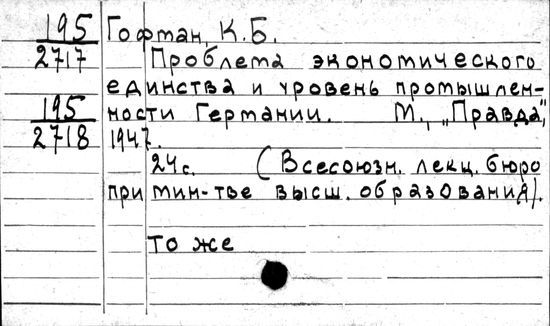 195 Гофман, К.Б.
2717 Проблема экономического
единства и уровень промышлен-
195 ности Германии. М., „Правда",
2718 1947.
24 с. (Всесоюзн. лекц. бюро
при мин-тве высш. образования).
то же